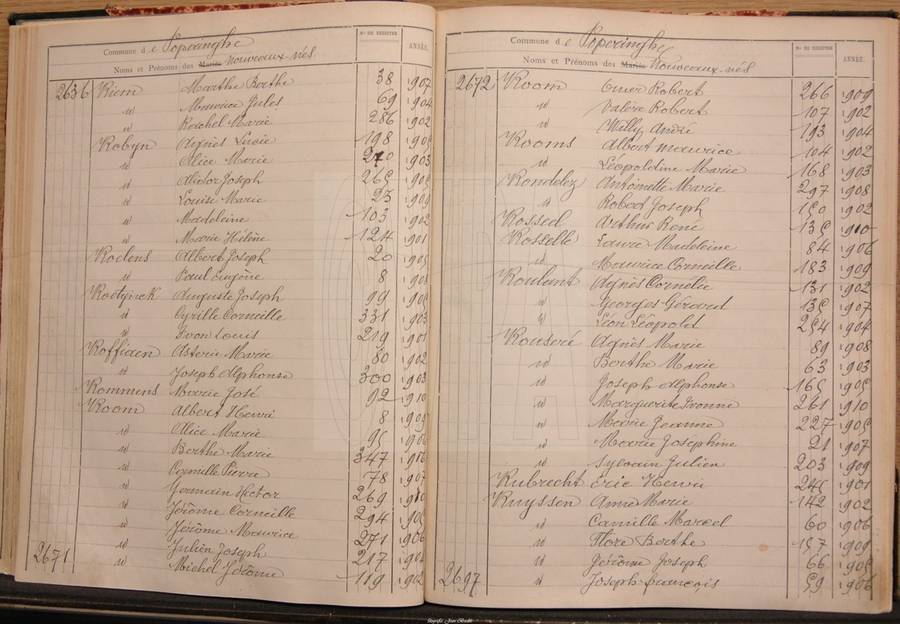 Commune de Poperinghe
Noms et Prénoms des Mariés Nouveaux-nés
Nos DU REGISTRE
ANNÉE.
2636 Riem Marthe Berthe 38 1907
id Maurice Jules 69 1904
id Rachel Marie 286 1902
Robyn Agnès Lucie 198
id Alice Marie 1903
id Joseph 265
id Louise Marie 23
id Madeleine 103 1902
id Marie Hélène 124 1901
Roelens Albert Joseph 20
id Paul Eugène 8
Auguste Joseph 99
id Cyrille Corneille 331 1903
id Yvon Louis 219 1901
Roffiaen Astérie Marie 80 1902
id Joseph Alphonse 300 1903
Rommens Marie José 92 1910
Room Albert Henri 8
id Alice Marie
id Berthe Marie 347
id Camille Pierre 78 1907
id Germain Hector 269
id Jérôme Corneille 294
id Jérôme Maurice 271 1906
id Julien Joseph 217
2671 id Michel Jérôme 119 1902
Commune de Poperinghe
Noms et Prénoms des Mariés Nouveaux-nés
Nos DU REGISTRE
ANNÉE.
2672 Room Omer Robert 266 1909
id Valère Robert 107 1902
id Willy André 193 1904
Rooms Albert Maurice 104 1902
id Léopoldine Marie 168 1903
Rondelez Antoinette Marie 297 1908
id Robert Joseph 150 1902
Rosseel Arthur René 135 1910
Rosselle Laura Madeleine 84 1906
id Maurice Corneille 183 1909
Roulent Agnès Cornelie 131 1902
id Georges Gérard 135 1907
id Léon Léopold 254 1904
Rouseré Agnès Marie 89 1908
id Berthe Marie 63 1903
id Joseph Alphonse 165 1905
id Marguerite Ivonne 261 1910
id Marie Jeanne 227 1905
id Marie Josephine 21 1907
id Sylvain Julien 203 1909
Rubrecht Eric Henri 245 1901
Ruyssen Anna Marie 142 1902
id Camille Marcel 60 1906
id Flore Berthe 157 1909
id Gérôme Joseph 66 1905
2697 id Joseph François 59 1906